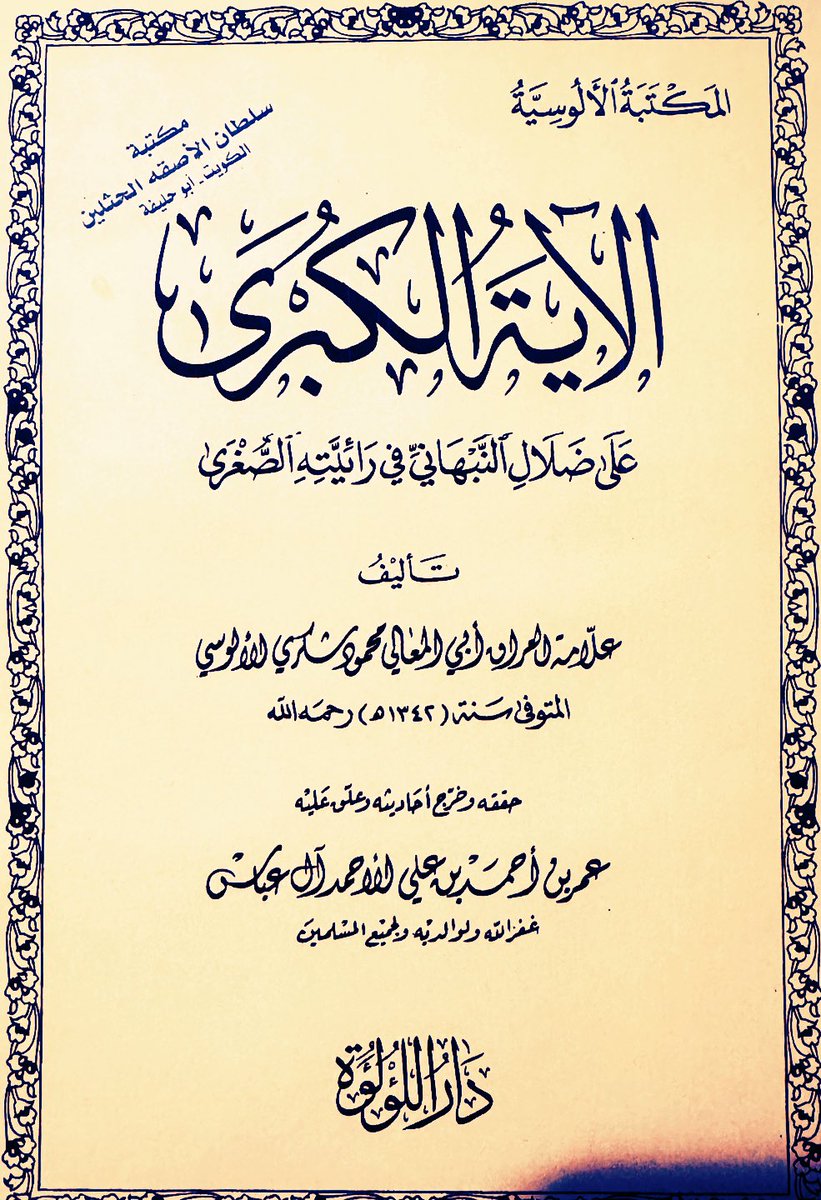 المَكْتَبَةُ الأَلُوسِيَّةُ
مكتبة
سلطان الأصقه الحثلين
الكويت - ابو حليفة
الآيَةُ الكُبْرَى
عَلَى ضَلَالِ النَّبْهَانِيِّ فِي رَائِيَّتِهِ الصُّغْرَى
تَأليْفُ
علّامة العراق أبي المعالي محمود شكري الألوسي
المتوفى سَنة (١٣٤٢ه) رحمَه الله
حققه وخرّج أحَاديثه وعلّق عَليْه
عمر بن أحمَد بن علي الأحمد آل عباس
غفر الله ولوالديْه ولجميْع المسْلمين
دَارُ اللُّؤْلُؤَة